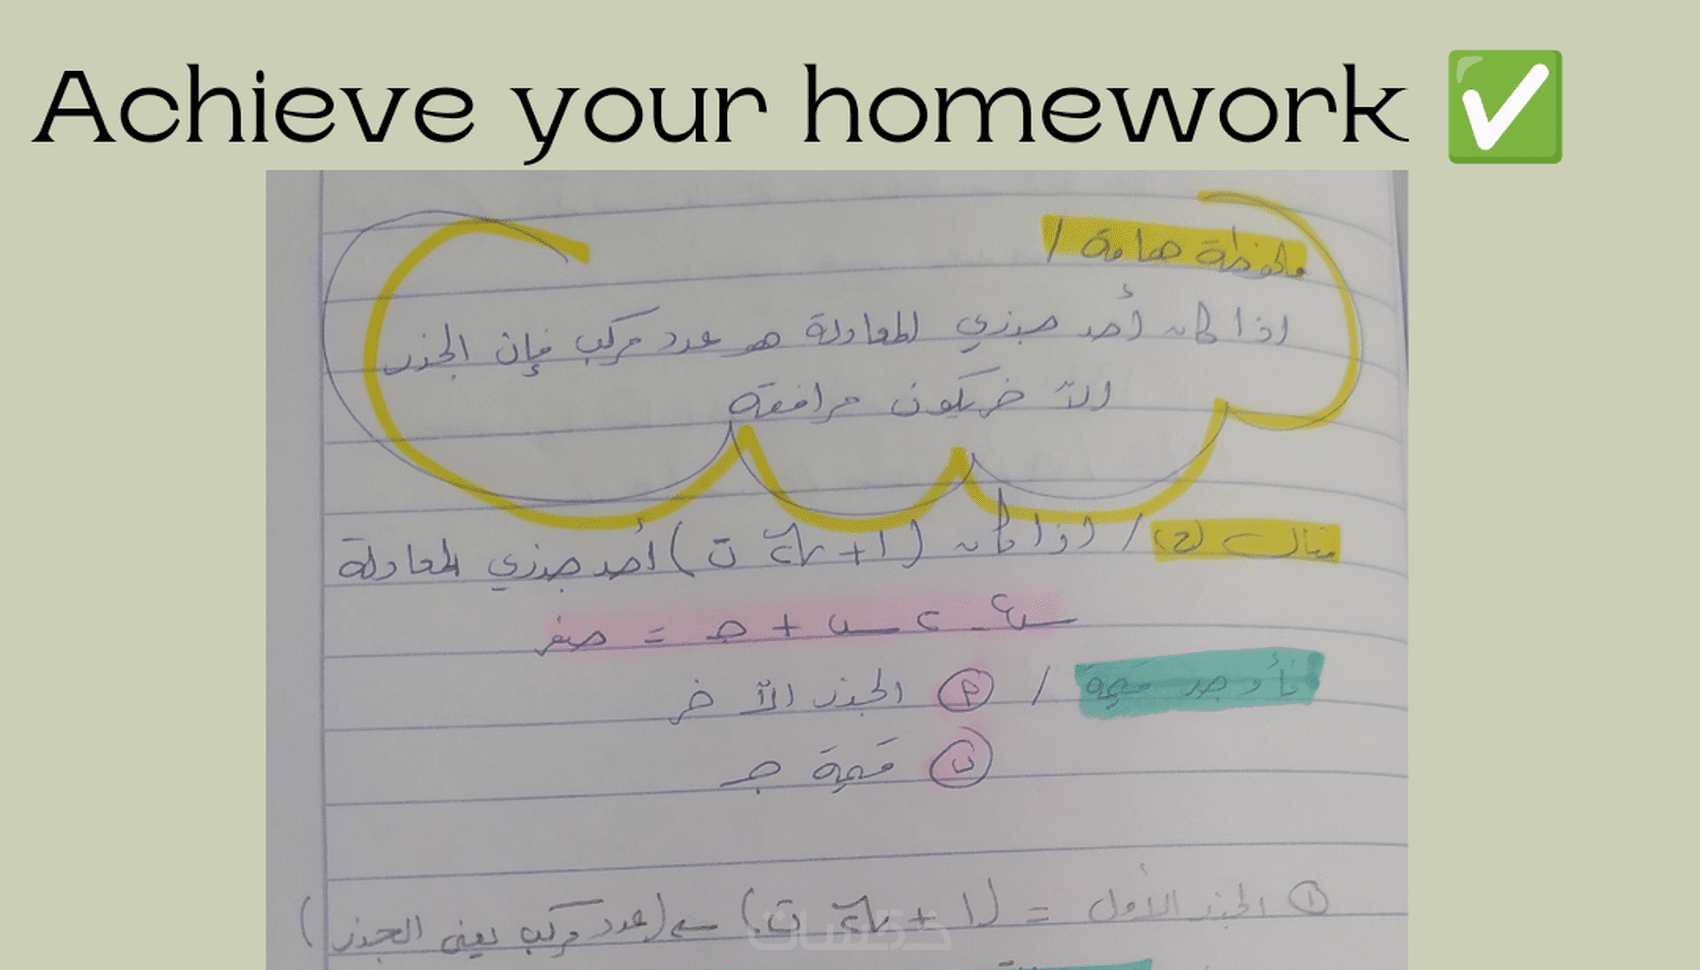 Achieve your homework ✅
ملحوظة هامة /
اذا كان أحد جذري المعادلة هو عدد مركب فإن الجذر
الآخر يكون مرافقه
مثال (2) / اذا كان (١ + √٢ ت) أحد جذري المعادلة
س٢ - ٢ س + جـ = صفر
فأوجد قيمة / (أ) الجذر الآخر
(ب) قيمة جـ
① الجذر الأول = (١ + √٢ ت) ← (عدد مركب يعني الجذر)
خمسات